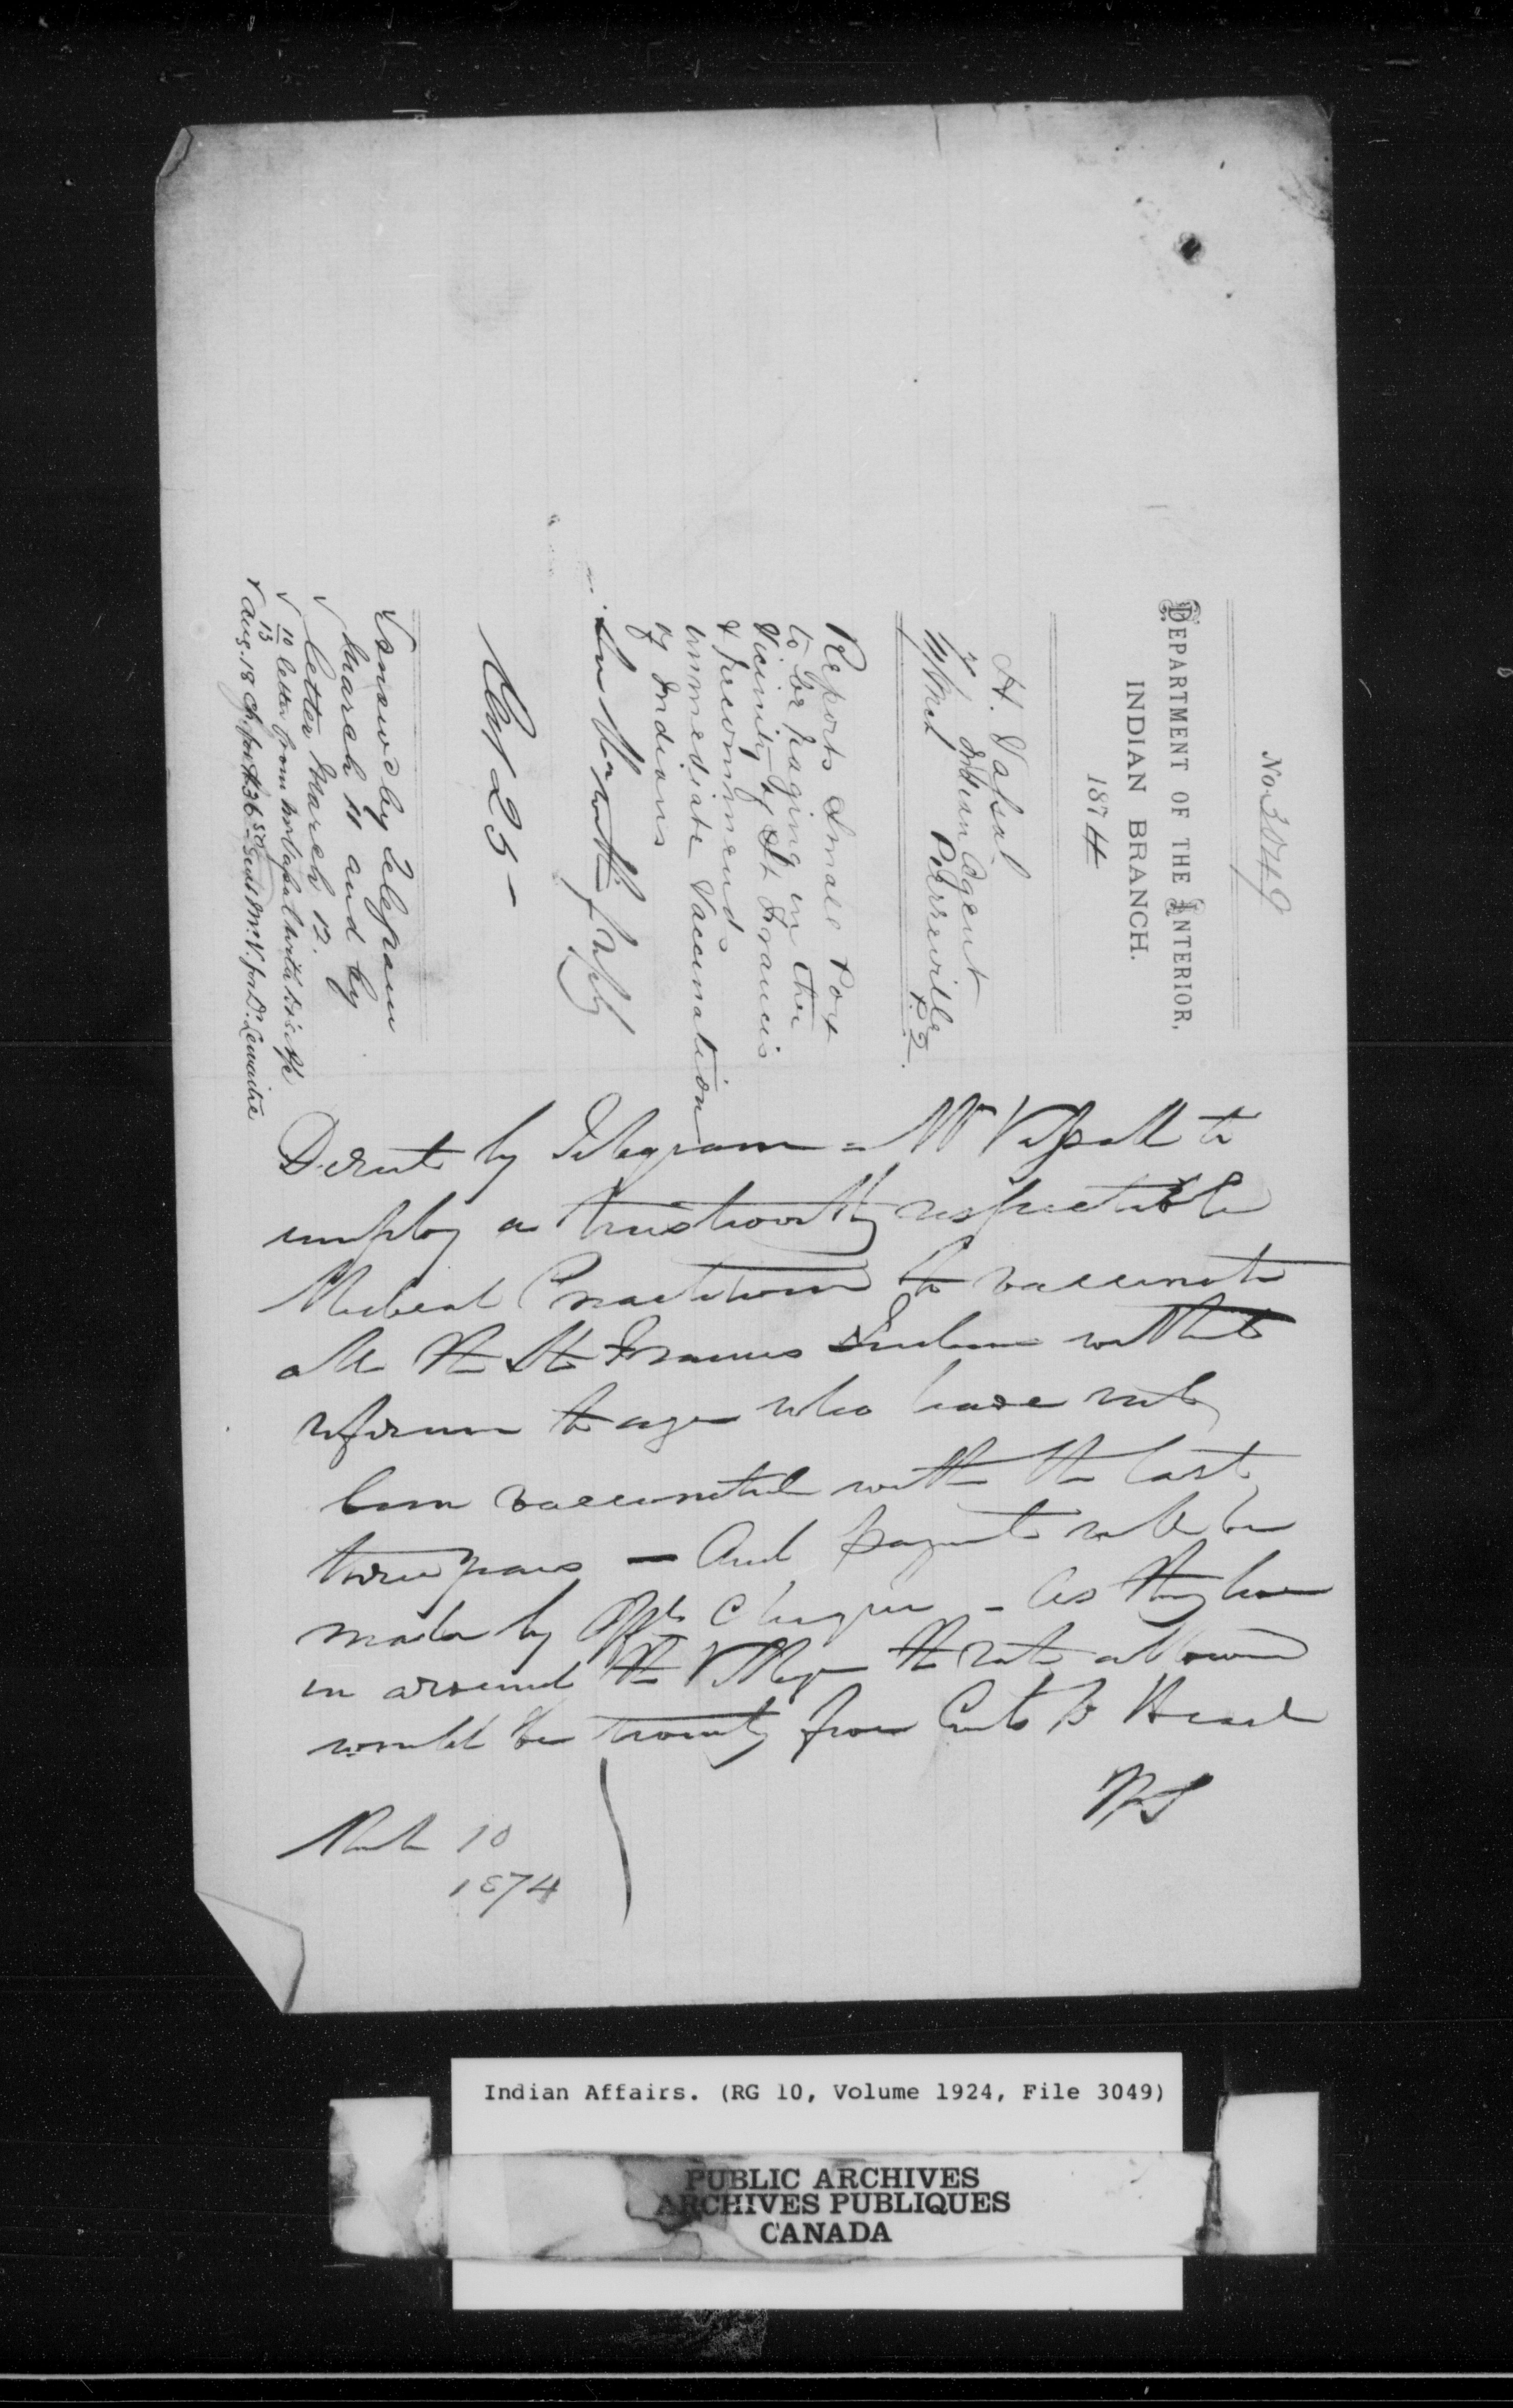 No 3049
DEPARTMENT OF THE INTERIOR,
INDIAN BRANCH.
1874
H. Vassal
Indian Agent
Pierreville
P.Q.
Reports Small Pox
to be raging in the
Vicinity of St Francis
& recommends
immediate Vaccination
of Indians
25 -
Answd by Telegram
March 11 and by
letter March 12.
10 letter from
13
Aug. 18 Ch. for $36.50 Sent Mr. V. for Dr. Lemaitre
Direct by Telegram - Mr Vassall to
employ a trustworthy respectable
Medical Practitioner to vaccinate
all the St Francis Indians without
reference to age who have not
been vaccinated within the last
three years — And payment will be
made by Offl Cheque - As they live
in around the Village the rate allowed
would be twenty five Cents Pr Head
March 10
1874
Indian Affairs. (RG 10, Volume 1924, File 3049)
PUBLIC ARCHIVES
ARCHIVES PUBLIQUES
CANADA